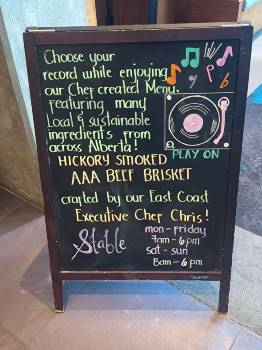 Choose your
record while enjoying
our Chef created Menu,
Featuring many
Local & sustainable
ingredients from
across Alberta!
PLAY ON
HICKORY SMOKED
AAA BEEF BRISKET
crafted by our East Coast
Executive Chef Chris!
Stable
mon-friday
7am-6pm
sat-sun
8am-6pm